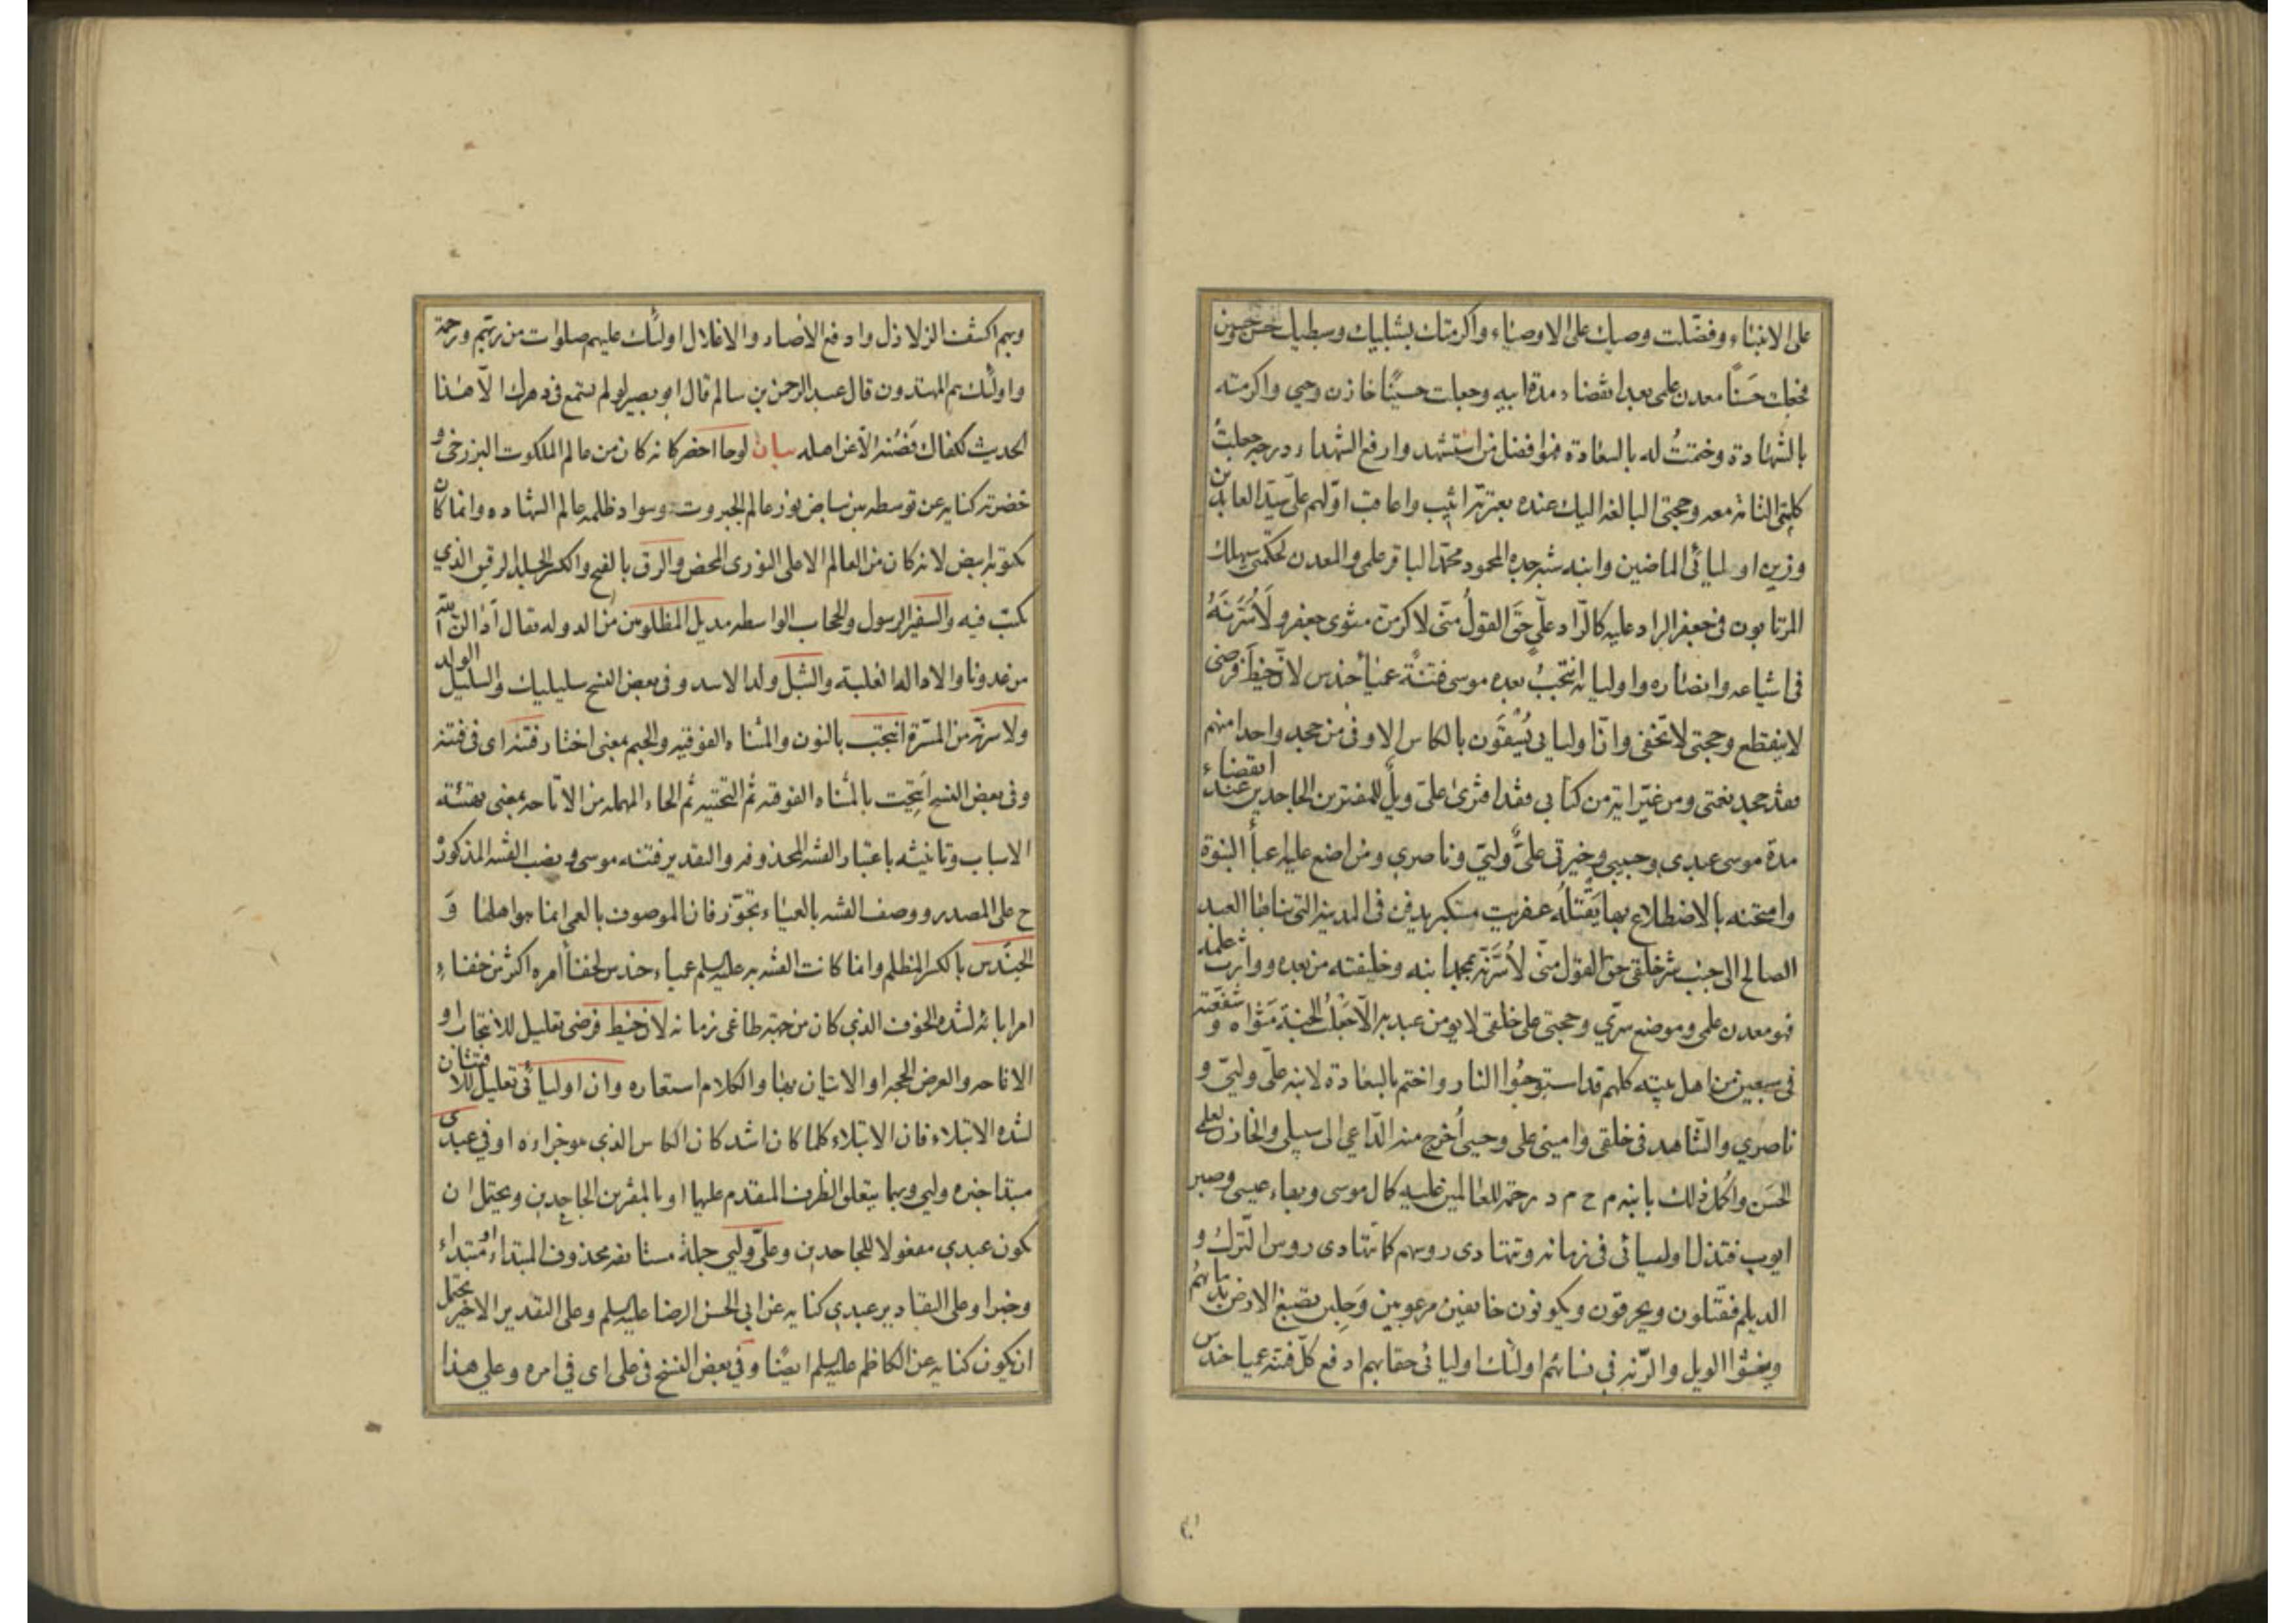 على الانبياء وفضّلت وصيك على الاوصياء واكرمتك بشبليك وسبطيك حسن وحسين
فجعلت حَسَنًا معدن علمى بعد انقضاء مدة ابيه وجعلت حسينًا خازن وحيى واكرمته
بالشهادة وختمتُ له بالسعادة فهو افضل من استشهد وارفع الشهداء درجه جعلتُ
كلمتى التامّه معه وحجتى البالغه اليك عنده بعترته اثيب واعاقب اوّلهم علىّ سيّد العابدين
وزين اوليائى الماضين وابنه شبه جده المحمود محمّد الباقر علمى والمعدن لحكمتى سيهلك
المرتابون فى جعفر الراد عليه كالرّاد علىّ حقّ القولُ منّى لاكرمنّ مثوى جعفر ولَاُسُرّنَّهُ
فى اشياعه وانصاره واوليائه انتجبُ بعده موسى فتنةً عمياء حندس لانّ خيط فرضى
لا ينقطع وحجتى لا تخفى وانّ اوليايى يُسْقَون بالكاس الاوفى من جحد واحدا منهم
فقد جحد نعمتى ومن غيّر اية من كتابى فقد افترى علىّ ويلٌ للمفترين الجاحدين عند انقضاء
مدة موسى عبدى وحبيبى وخيرتى علىٌّ وليّى وناصرى ومن اضع عليه اعبأ النبوّة
وامتحنه بالاضطلاع بها يقتلُه عفريت مستكبر يدفن فى المدينه التى بناها العبد
الصالح الى جنب شرّ خلقى حقّ القول منّى لاُسُرّنّه بمحمد ابنه وخليفته من بعده ووارث علمه
فهو معدن علمى وموضع سرّي وحجتى على خلقى لا يومن عبد به الّا جَعَلتُ الجنّة مَثْواه وشفّعته
فى سبعين من اهل بيته كلهم قد استوجبُوا النار واختم بالسعادة لابنه علىّ وليّى و
ناصري والشاهد فى خلقى وامينى على وحيى اُخرج منه الدّاعي الى سبيلى والخازن لعلمى
الحَسَن واُكمل ذلك بابنه م ح م د رحمة للعالمين عليه كمال موسى وبهاء عيسى وصبر
ايوب فتذلّ اوليائى فى زمانه وتتهادى روسهم كما تتهادى روس التّرك و
الديلم فيقتلون ويحرقون ويكونون خايفين مرعوبين وَجِلين تصبغ الارض بدمائهم
ويفشُوا الويل والرّنه في نسائهم اولئك اوليائى حقا بهم ادفع كلّ فتنه عميا حندس
وبهم اكشف الزلازل وادفع الاصار والاغلال اولئك عليهم صلوات من ربهم ورحمة
واولئك هم المهتدون قال عبد الرحمن بن سالم قال ابو بصير لو لم تسمع فى دهرك الّا هذا
الحديث لكفاك فَصُنه الّا عن اهله بيان لوحا اخضر كانه كان من عالم الملكوت البرزخى و
خضرته كنايه عن توسطه بين بياض نور عالم الجبروت وسواد ظلمه عالم الشهاده وانما كان
مكتوبه ابيض لانه كان من العالم الاعلى النورى المحض والرق بالفتح والكسر الجلد الرقيق الذي
يكتب فيه والسفير الرسول والحجاب الواسطه مديل المظلومين من الدوله يقال أدالنا الله
من عدونا والاداله الغلبة والشبل ولد الاسد وفى بعض النسخ سليليك والسليل الولد
ولاسرّنّه من المسَرّة انتجب بالنون والمثناه الفوقيه والجيم بمعنى اختار فتنه اى فى فتنه
وفى بعض النسخ اُتيحت بالمثناه الفوقيه ثم التحتيه ثم الحاء المهمله من الاتاحه بمعنى تهيئة
الاسباب وتانيثه باعتبار الفتنه المحذوفه والتقدير فتنه موسى ونصب الفتنه المذكورة
ح على المصدر ووصف الفتنه بالعمياء تجوّز فان الموصوف بالعمى انما هو اهلها وَ
الحندس بالكسر المظلم وانما كانت الفتنه به عليه السلم عمياء حندس لخفأ امره اكثر من خفاء
امر ابائه لشدة الخوف الذي كان من جهة طاغى زمانه لان خيط فرضى تعليل للانتجاب او
الاتاحه والعرض الحجه او الاتيان بها والكلام استعاره وان اوليائى تعليل للافتتان
لشده الابتلاء فان الابتلاء كلما كان اشد كان الكاس الذي هو جزاءه اوفى عبدى
مبتدا خبره وليى وبهما يتعلق الظرف المقدم عليهما او بالمفترين الجاحدين ويحتمل ان
يكون عبدي مفعولا للجاحدين وعلىّ وليي جملة مستانفه محذوف المبتداء او مبتداء
وخبرا وعلى التقادير عبدي كنايه عن ابى الحسن الرضا عليه السلم وعلى التقدير الاخير يحتمل
ان يكون كنايه عن الكاظم عليه السلم ايضًا وفي بعض النسخ فى على اى في امره وعلى هذا